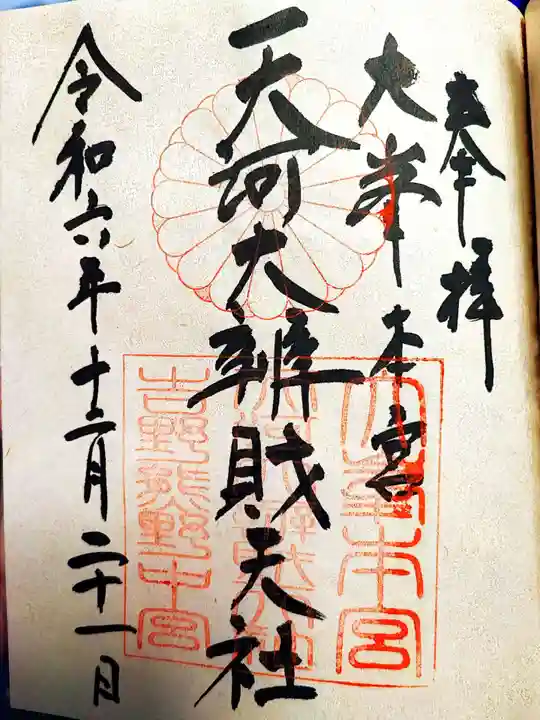 奉拝
大峯本宮
天河大辨財天社
令和六年十二月二十一日
大峯本宮
吉野熊野中宮